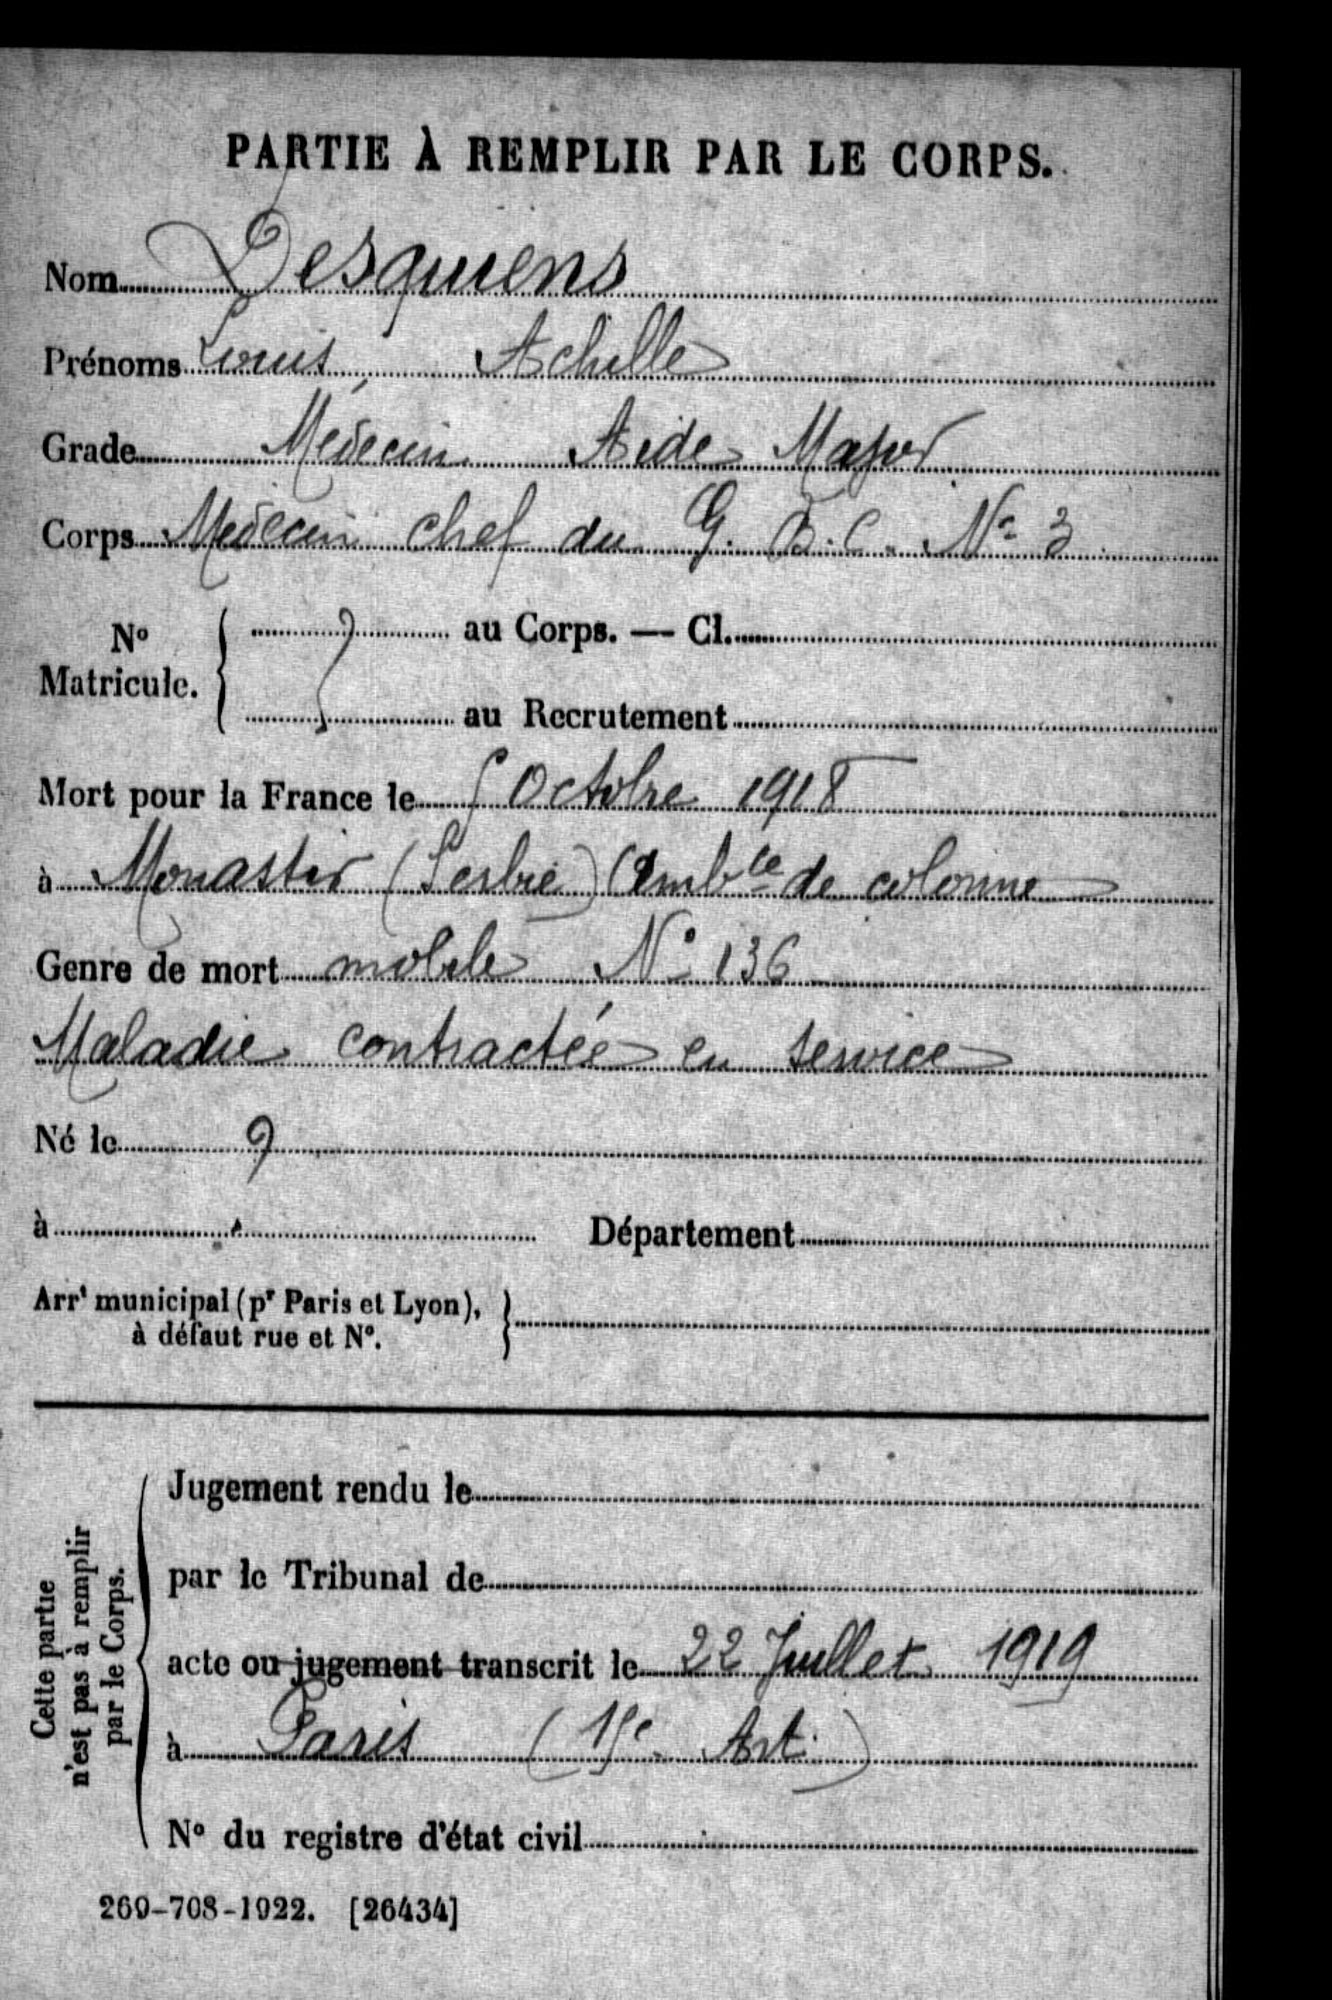 PARTIE À REMPLIR PAR LE CORPS.
Nom Desquiens
Prénoms Louis Achille
Grade Médecin Aide Major
Corps Médecin chef du G. B. C. No 3
No Matricule. { ? au Corps. — Cl.
au Recrutement
Mort pour la France le 5 Octobre 1918
à Monastir (Serbie) (Ambce de colonne
Genre de mort mobile No 136
Maladie contractée en service
Né le ?
à Département
Arrt municipal (pr Paris et Lyon),
à défaut rue et No. }
Cette partie
n'est pas à remplir
par le Corps.
Jugement rendu le
par le Tribunal de
acte ou jugement transcrit le 22 Juillet 1919
à Paris (15e Art.)
No du registre d'état civil
269-708-1922. [26434]